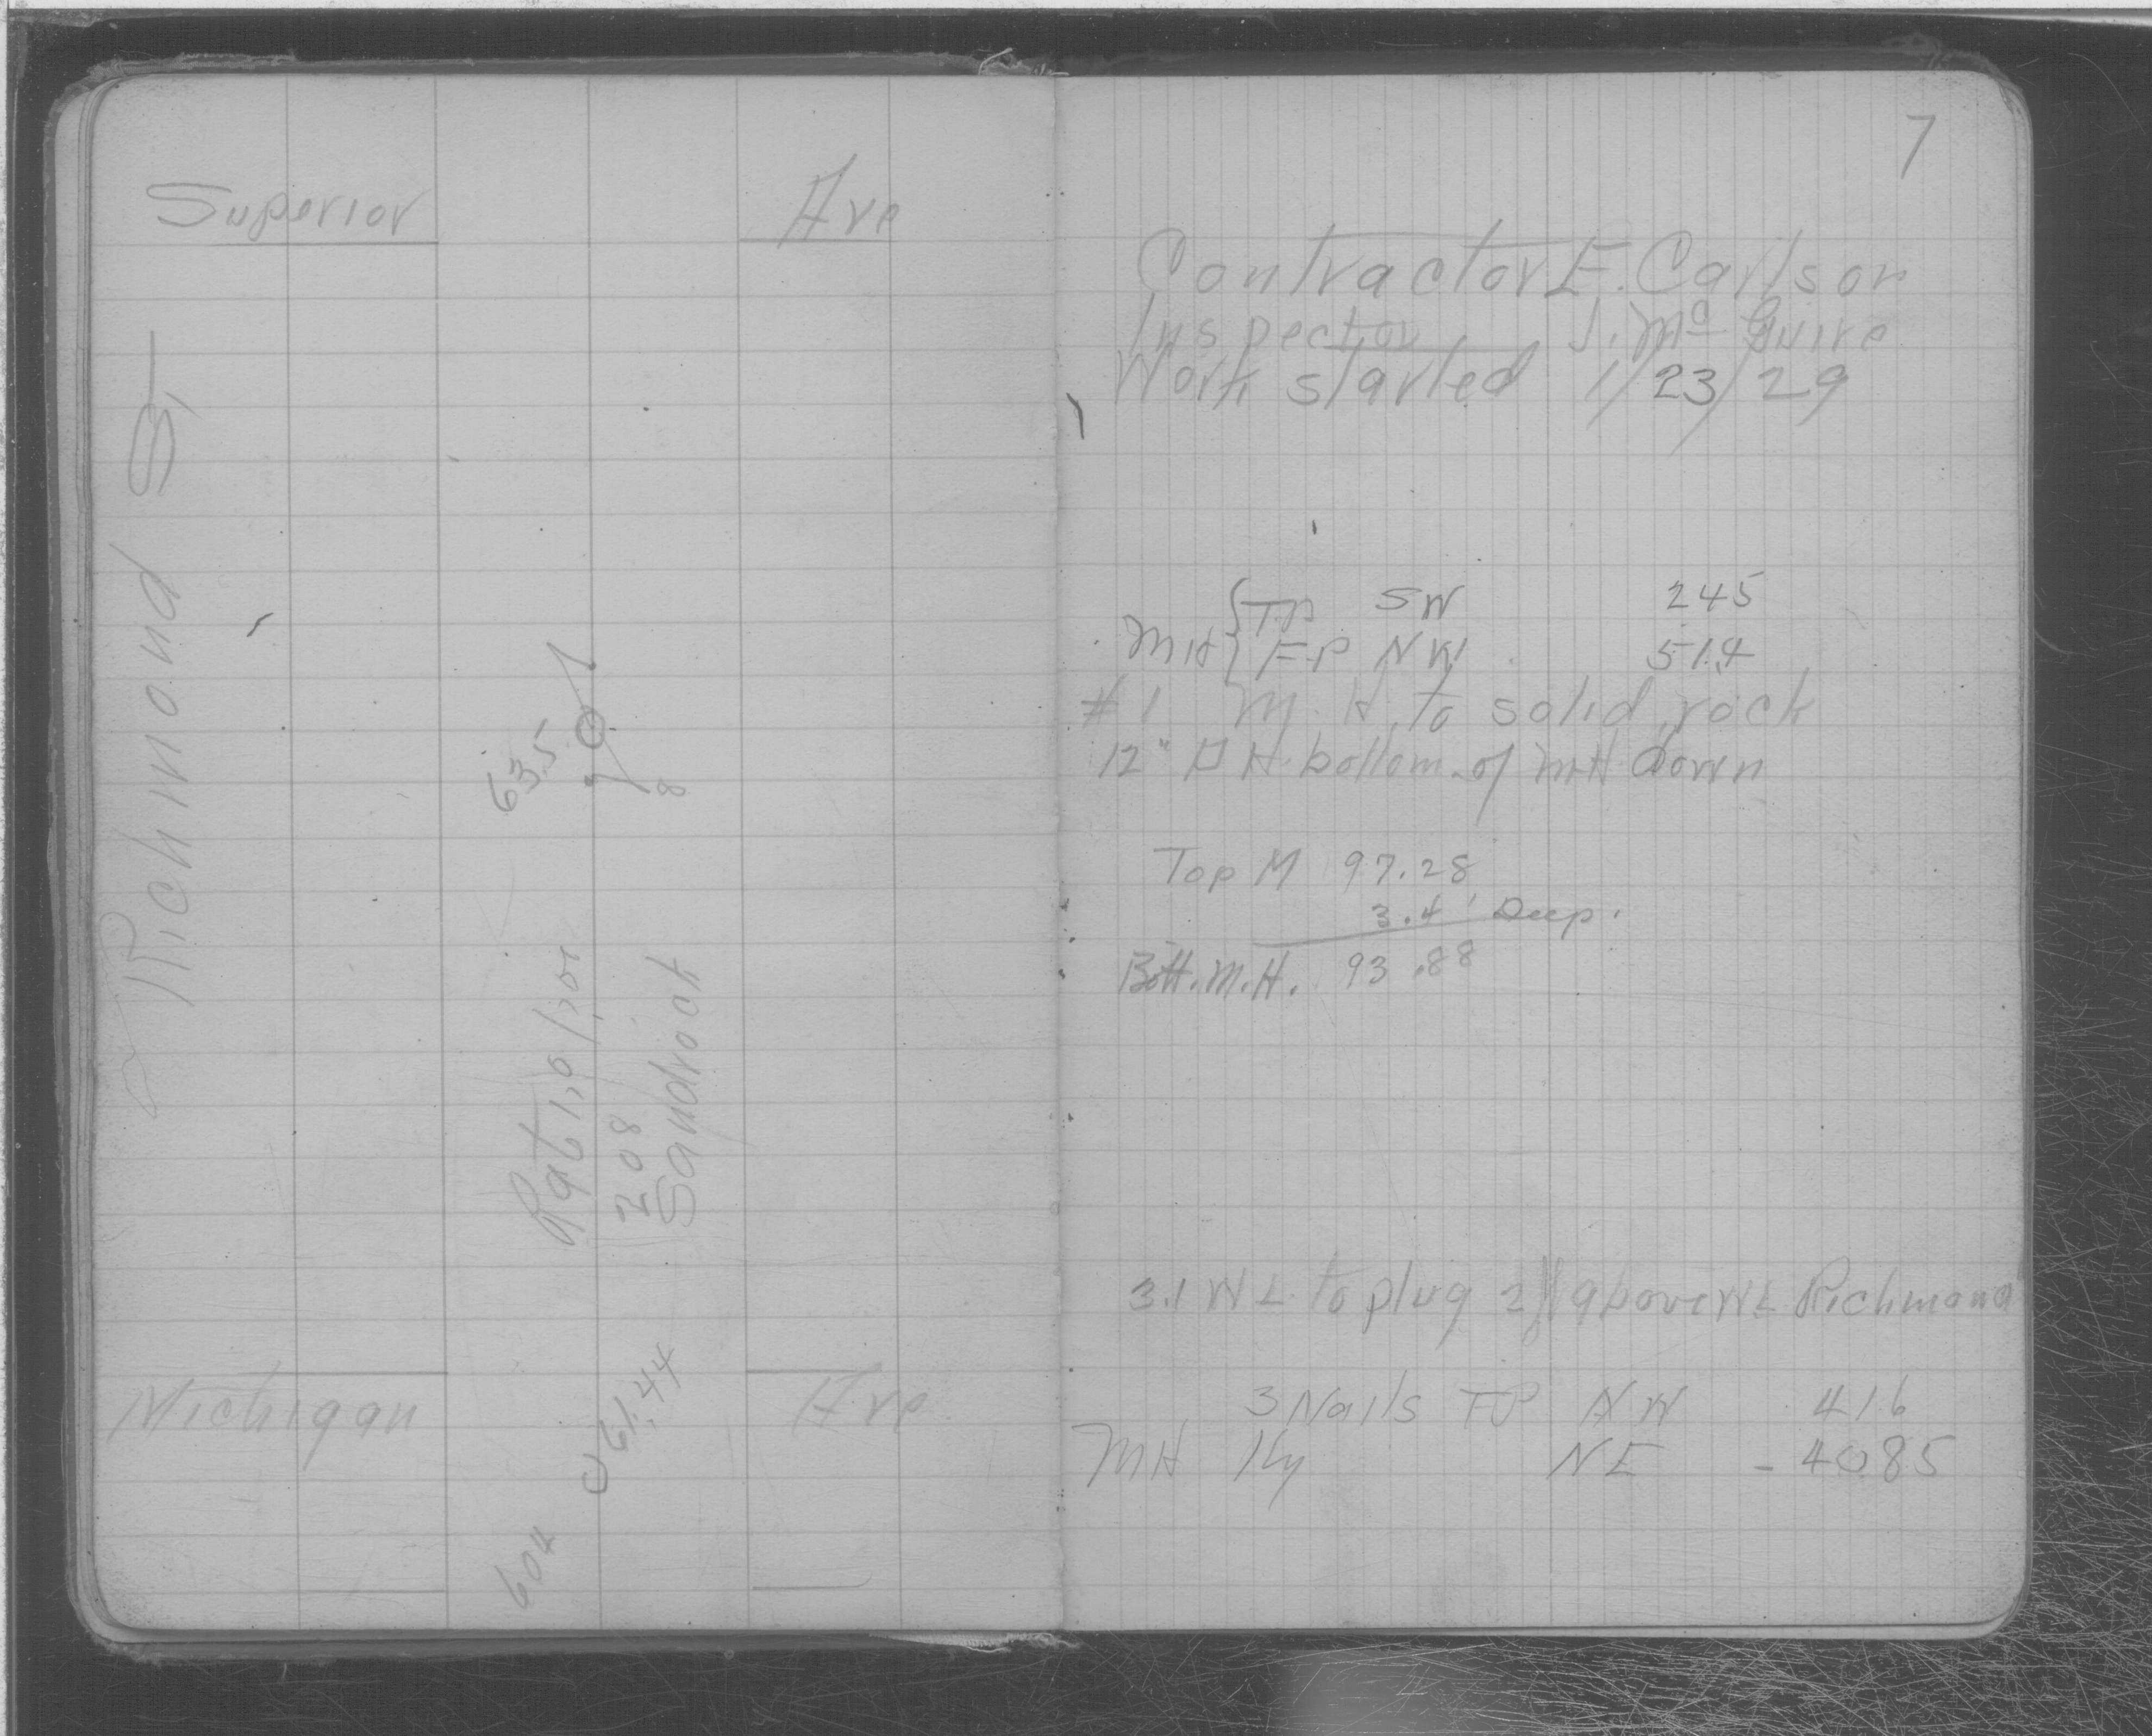 Superior Ave
Richmond St
63.5
8
208
Sandrock
Michigan Ave
61.44
604
7
Contractor E. Carlson
Inspector J. Mc Guire
Work started 1/23/29
MH { T.P. SW 245
F.P NW 51.4
#1 M.H. to solid rock
12" D H. bottom of MH down
Top M 97.28
3.4' Deep.
Bott. M.H. 93.88
3.1 W L. to plug 2 ft above WL Richmond
3 Nails TP NW 416
MH Ky NE - 40.85